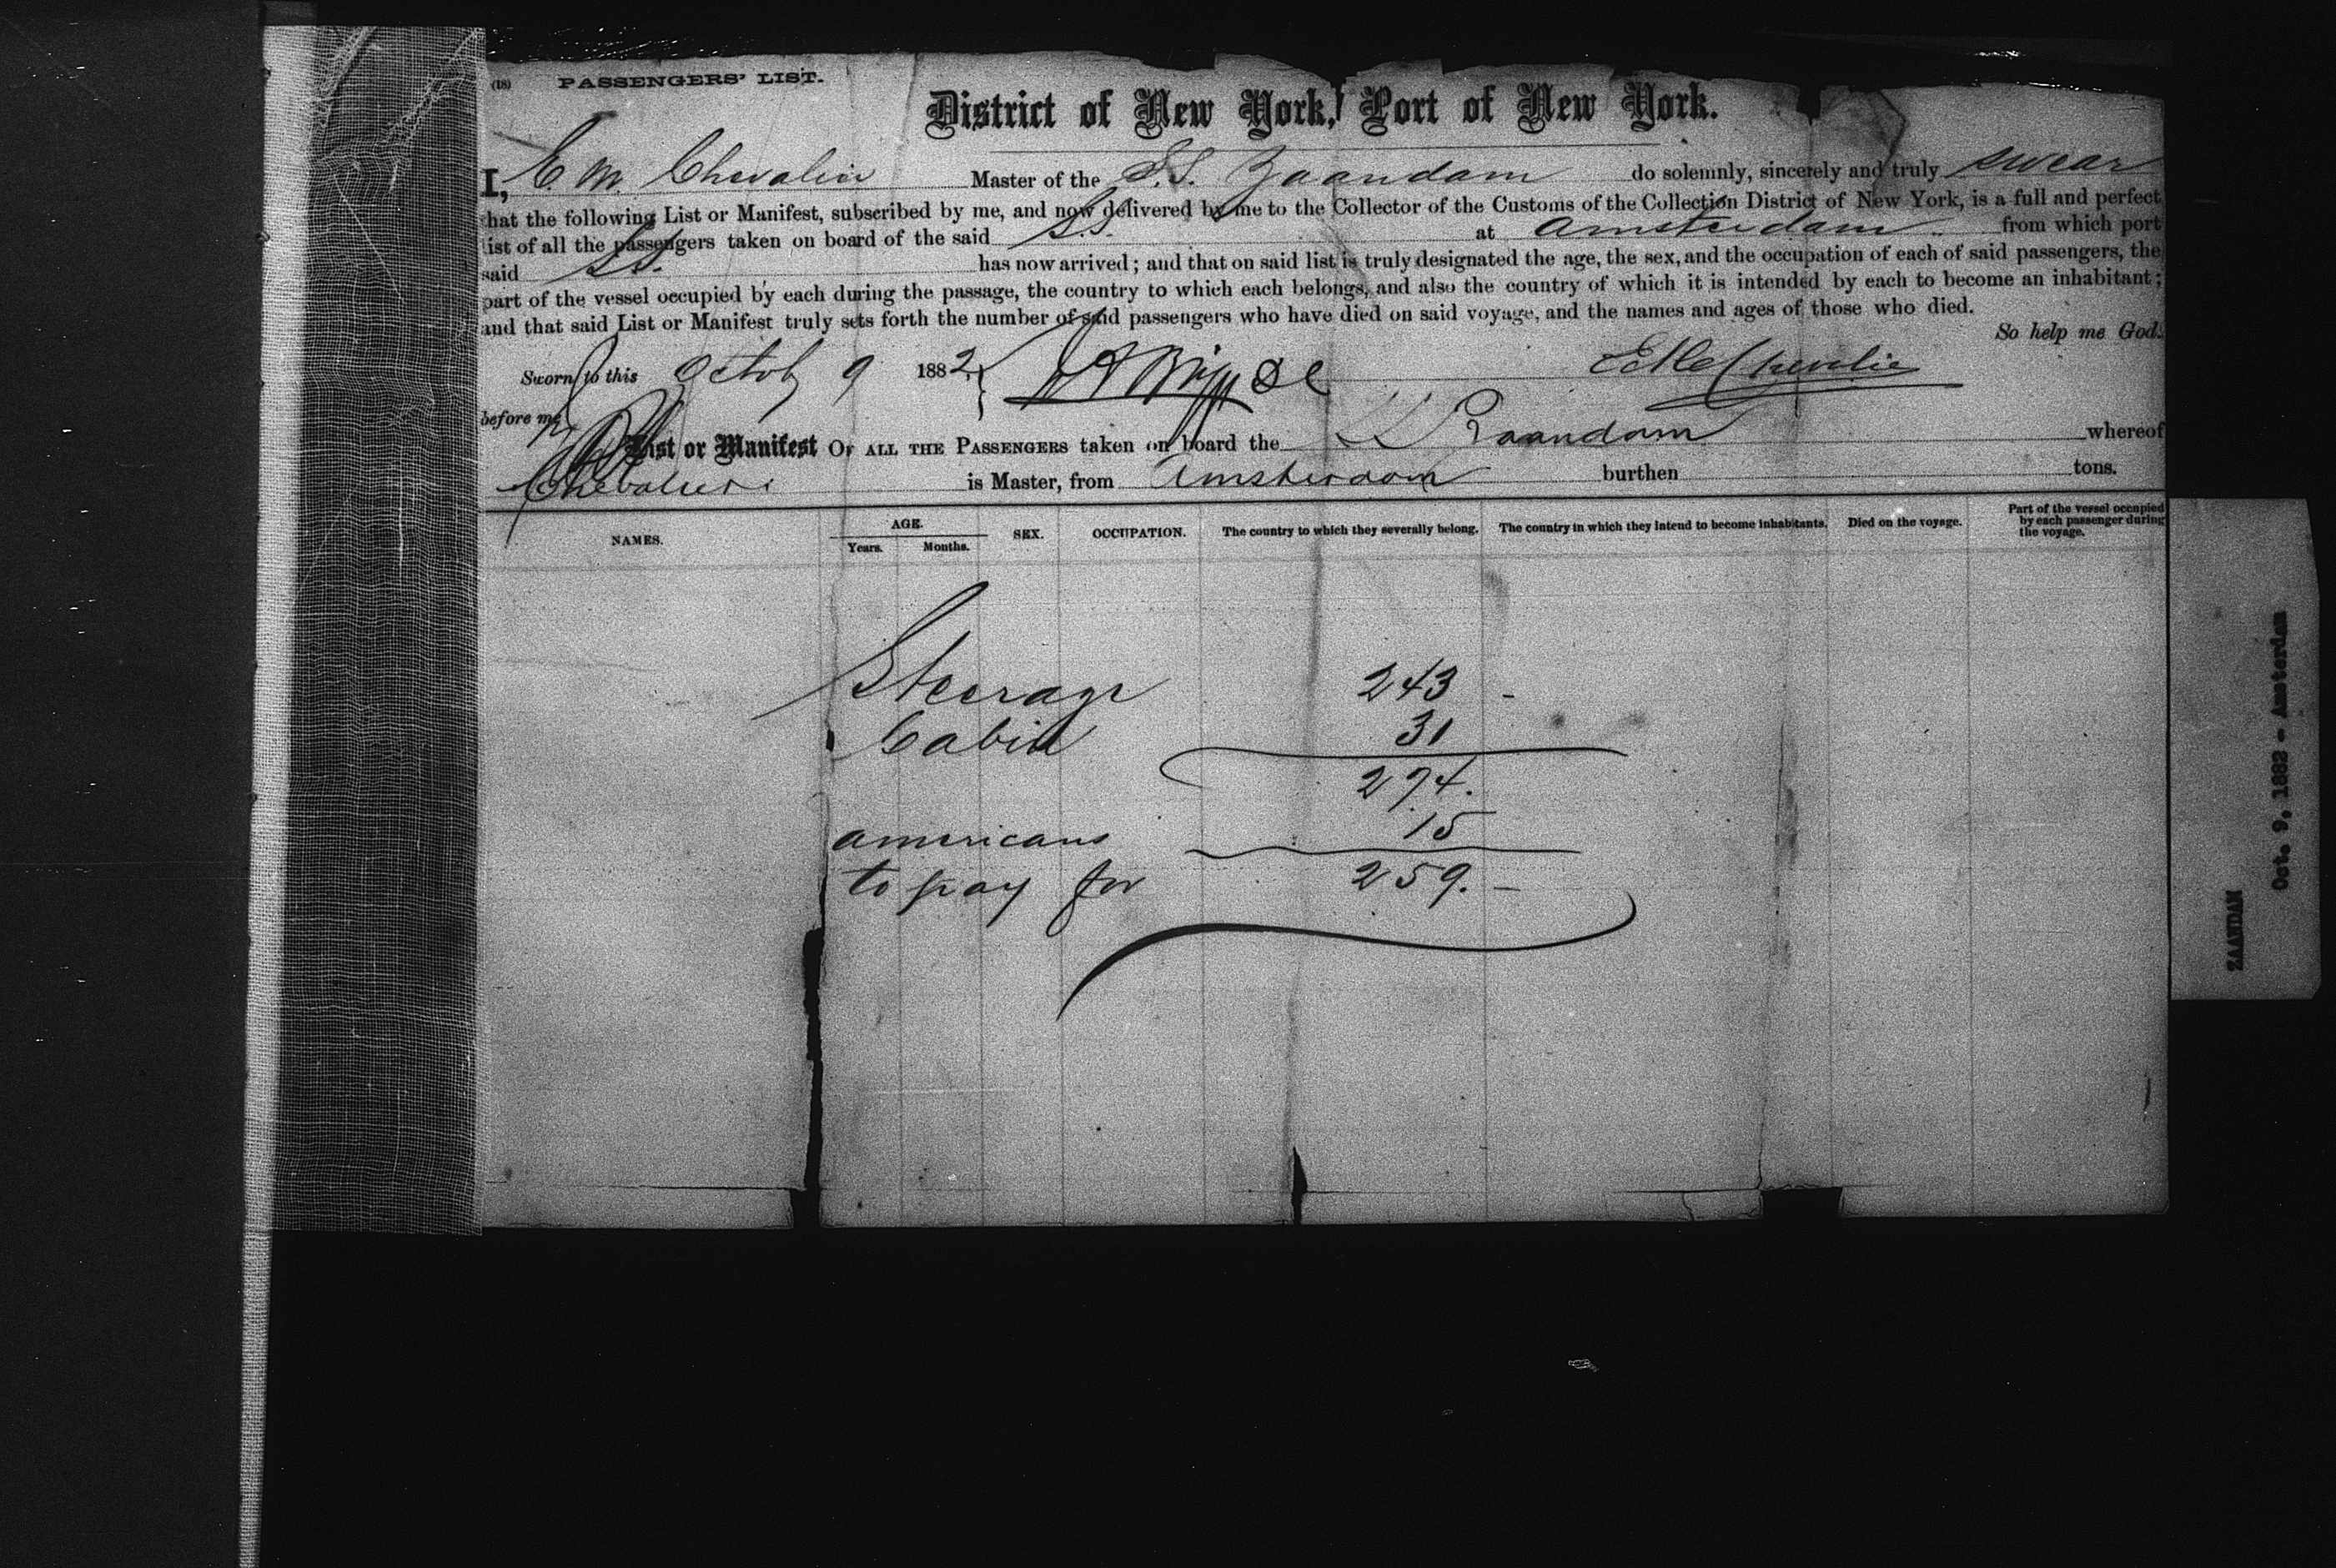 (18) PASSENGERS' LIST.
District of New York, Port of New York.
I, E. M. Chevalier Master of the S.S. Zaandam do solemnly, sincerely and truly swear
that the following List or Manifest, subscribed by me, and now delivered by me to the Collector of the Customs of the Collection District of New York, is a full and perfect
list of all the passengers taken on board of the said S.S. at Amsterdam from which port
said S.S. has now arrived; and that on said list is truly designated the age, the sex, and the occupation of each of said passengers, the
part of the vessel occupied by each during the passage, the country to which each belongs, and also the country of which it is intended by each to become an inhabitant;
and that said List or Manifest truly sets forth the number of said passengers who have died on said voyage, and the names and ages of those who died.
So help me God.
Sworn to this October 9 1882 Chevalier
before me
List or Manifest OF ALL THE PASSENGERS taken on board the Zaandam whereof
Chevalier is Master, from Amsterdam burthen tons.
NAMES. AGE. Years. Months. SEX. OCCUPATION. The country to which they severally belong. The country in which they intend to become inhabitants. Died on the voyage. Part of the vessel occupied by each passenger during the voyage.
Steerage 243 -
Cabin 31
274.
americans 15
to pay for 259. -
ZAANDAM
Oct. 9, 1882 - Amsterdam